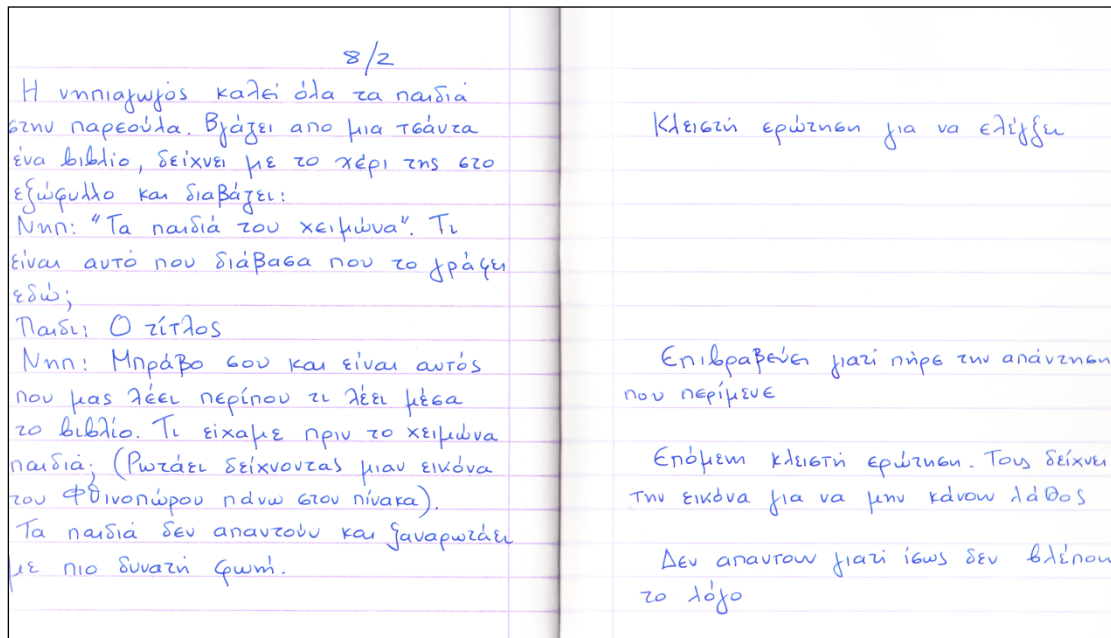 8/2
Η νηπιαγωγός καλεί όλα τα παιδιά
στην παρεούλα. Βγάζει απο μια τσάντα
ένα βιβλίο, δείχνει με το χέρι της στο
εξώφυλλο και διαβάζει:
Νηπ: "Τα παιδιά του χειμώνα". Τι
είναι αυτό που διάβασα που το γράφει
εδώ;
Παιδι: Ο τίτλος
Νηπ: Μπράβο σου και είναι αυτός
που μας λέει περίπου τι λέει μέσα
το βιβλίο. Τι είχαμε πριν το χειμώνα
παιδιά; (Ρωτάει δείχνοντας μιαν εικόνα
του Φθινοπώρου πάνω στον πίνακα).
Τα παιδιά δεν απαντούν και ξαναρωτάει
με πιο δυνατή φωνή.
Κλειστή ερώτηση για να ελέγξει
Επιβραβεύει γιατί πήρε την απάντηση
που περίμενε
Επόμενη κλειστή ερώτηση. Τους δείχνει
την εικόνα για να μην κάνουν λάθος
Δεν απαντουν γιατί ίσως δεν βλέπουν
το λόγο